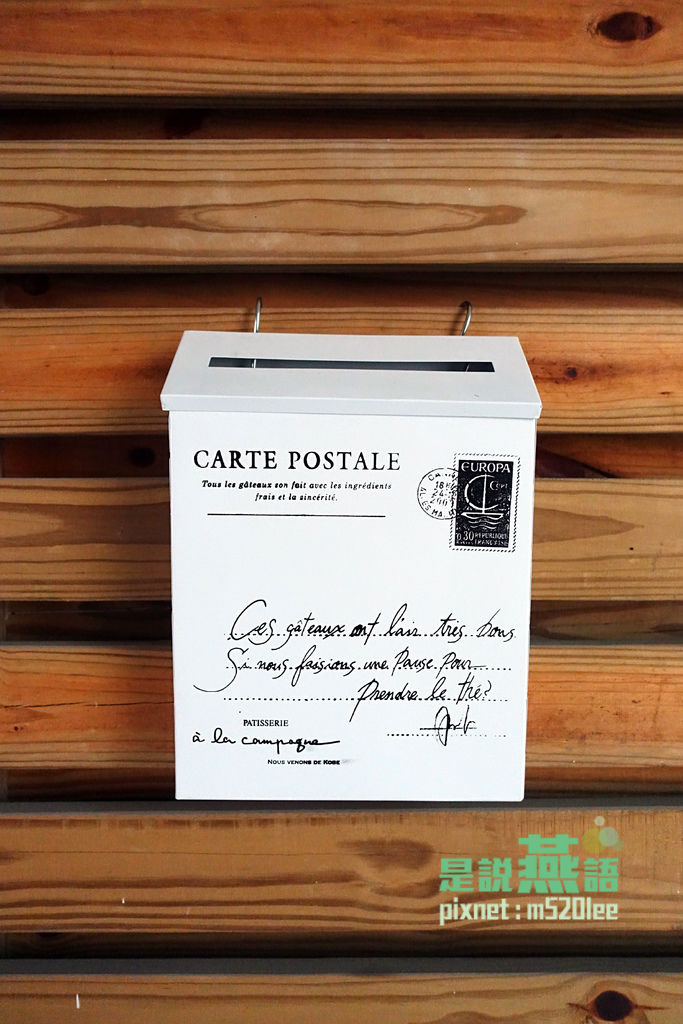 CARTE POSTALE
Tous les gâteaux son fait avec les ingrédients
frais et la sincérité.
EUROPA
0.30 REPUBLIQUE
FRANÇAISE
Ces gâteaux ont l'air très bons
Si nous faisions une Pause Pour
Prendre le thé?
PATISSERIE
à la campagne
NOUS VENONS DE KOBE
是說燕語
pixnet : m520lee